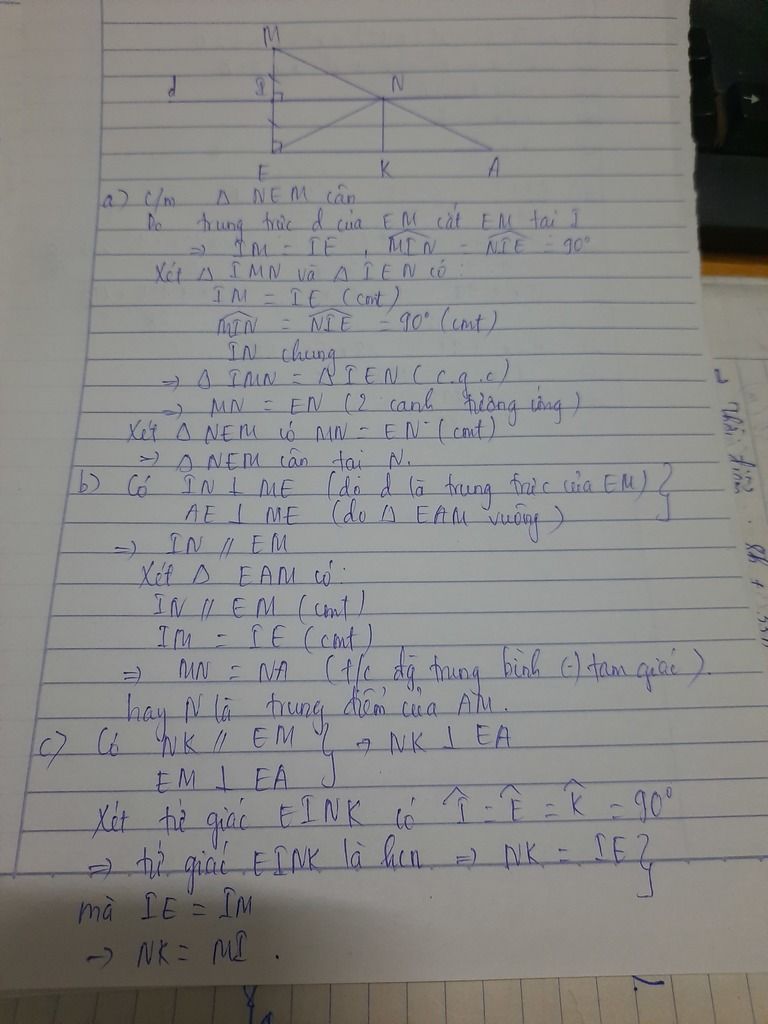 M
d I N
E K A
a) c/m △ NEM cân
Do trung trực d của EM cắt EM tại I
=> IM = IE , MIN = NIE = 90°
Xét △ IMN và △ IEN có:
IM = IE (cmt)
MIN = NIE = 90° (cmt)
IN chung
=> △ IMN = △ IEN (c.g.c)
=> MN = EN (2 cạnh tương ứng)
Xét △ NEM có MN = EN (cmt)
=> △ NEM cân tại N.
b) Có IN ⊥ ME (do d là trung trực của EM) }
AE ⊥ ME (do △ EAM vuông)
=> IN // EM
Xét △ EAM có:
IN // EM (cmt)
IM = IE (cmt)
=> MN = NA (t/c đg trung bình (-) tam giác).
hay N là trung điểm của AM.
c) Có NK // EM } => NK ⊥ EA
EM ⊥ EA
Xét tứ giác EINK có I = E = K = 90°
=> tứ giác EINK là hcn => NK = IE }
mà IE = IM
-> NK = MI .